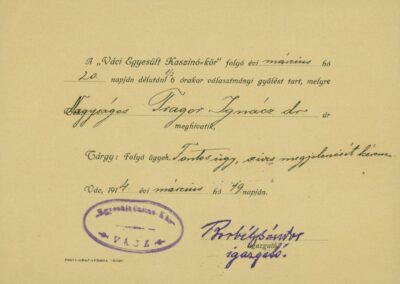 A „Váci Egyesült Kaszinó-kör” folyó évi március hó
20. napján délutáni ½6 órakor választmányi gyűlést tart, melyre
Nagyságos Tragor Ignácz dr úr
meghivatik.
Tárgy: Folyó ügyek. Fontos ügy, szives megjelenését kérem.
Vác, 1914 évi március hó 19 napján.
Egyesült Casino-Kör
VÁCZ
Borbély Sándor
igazgató.
igazgató.